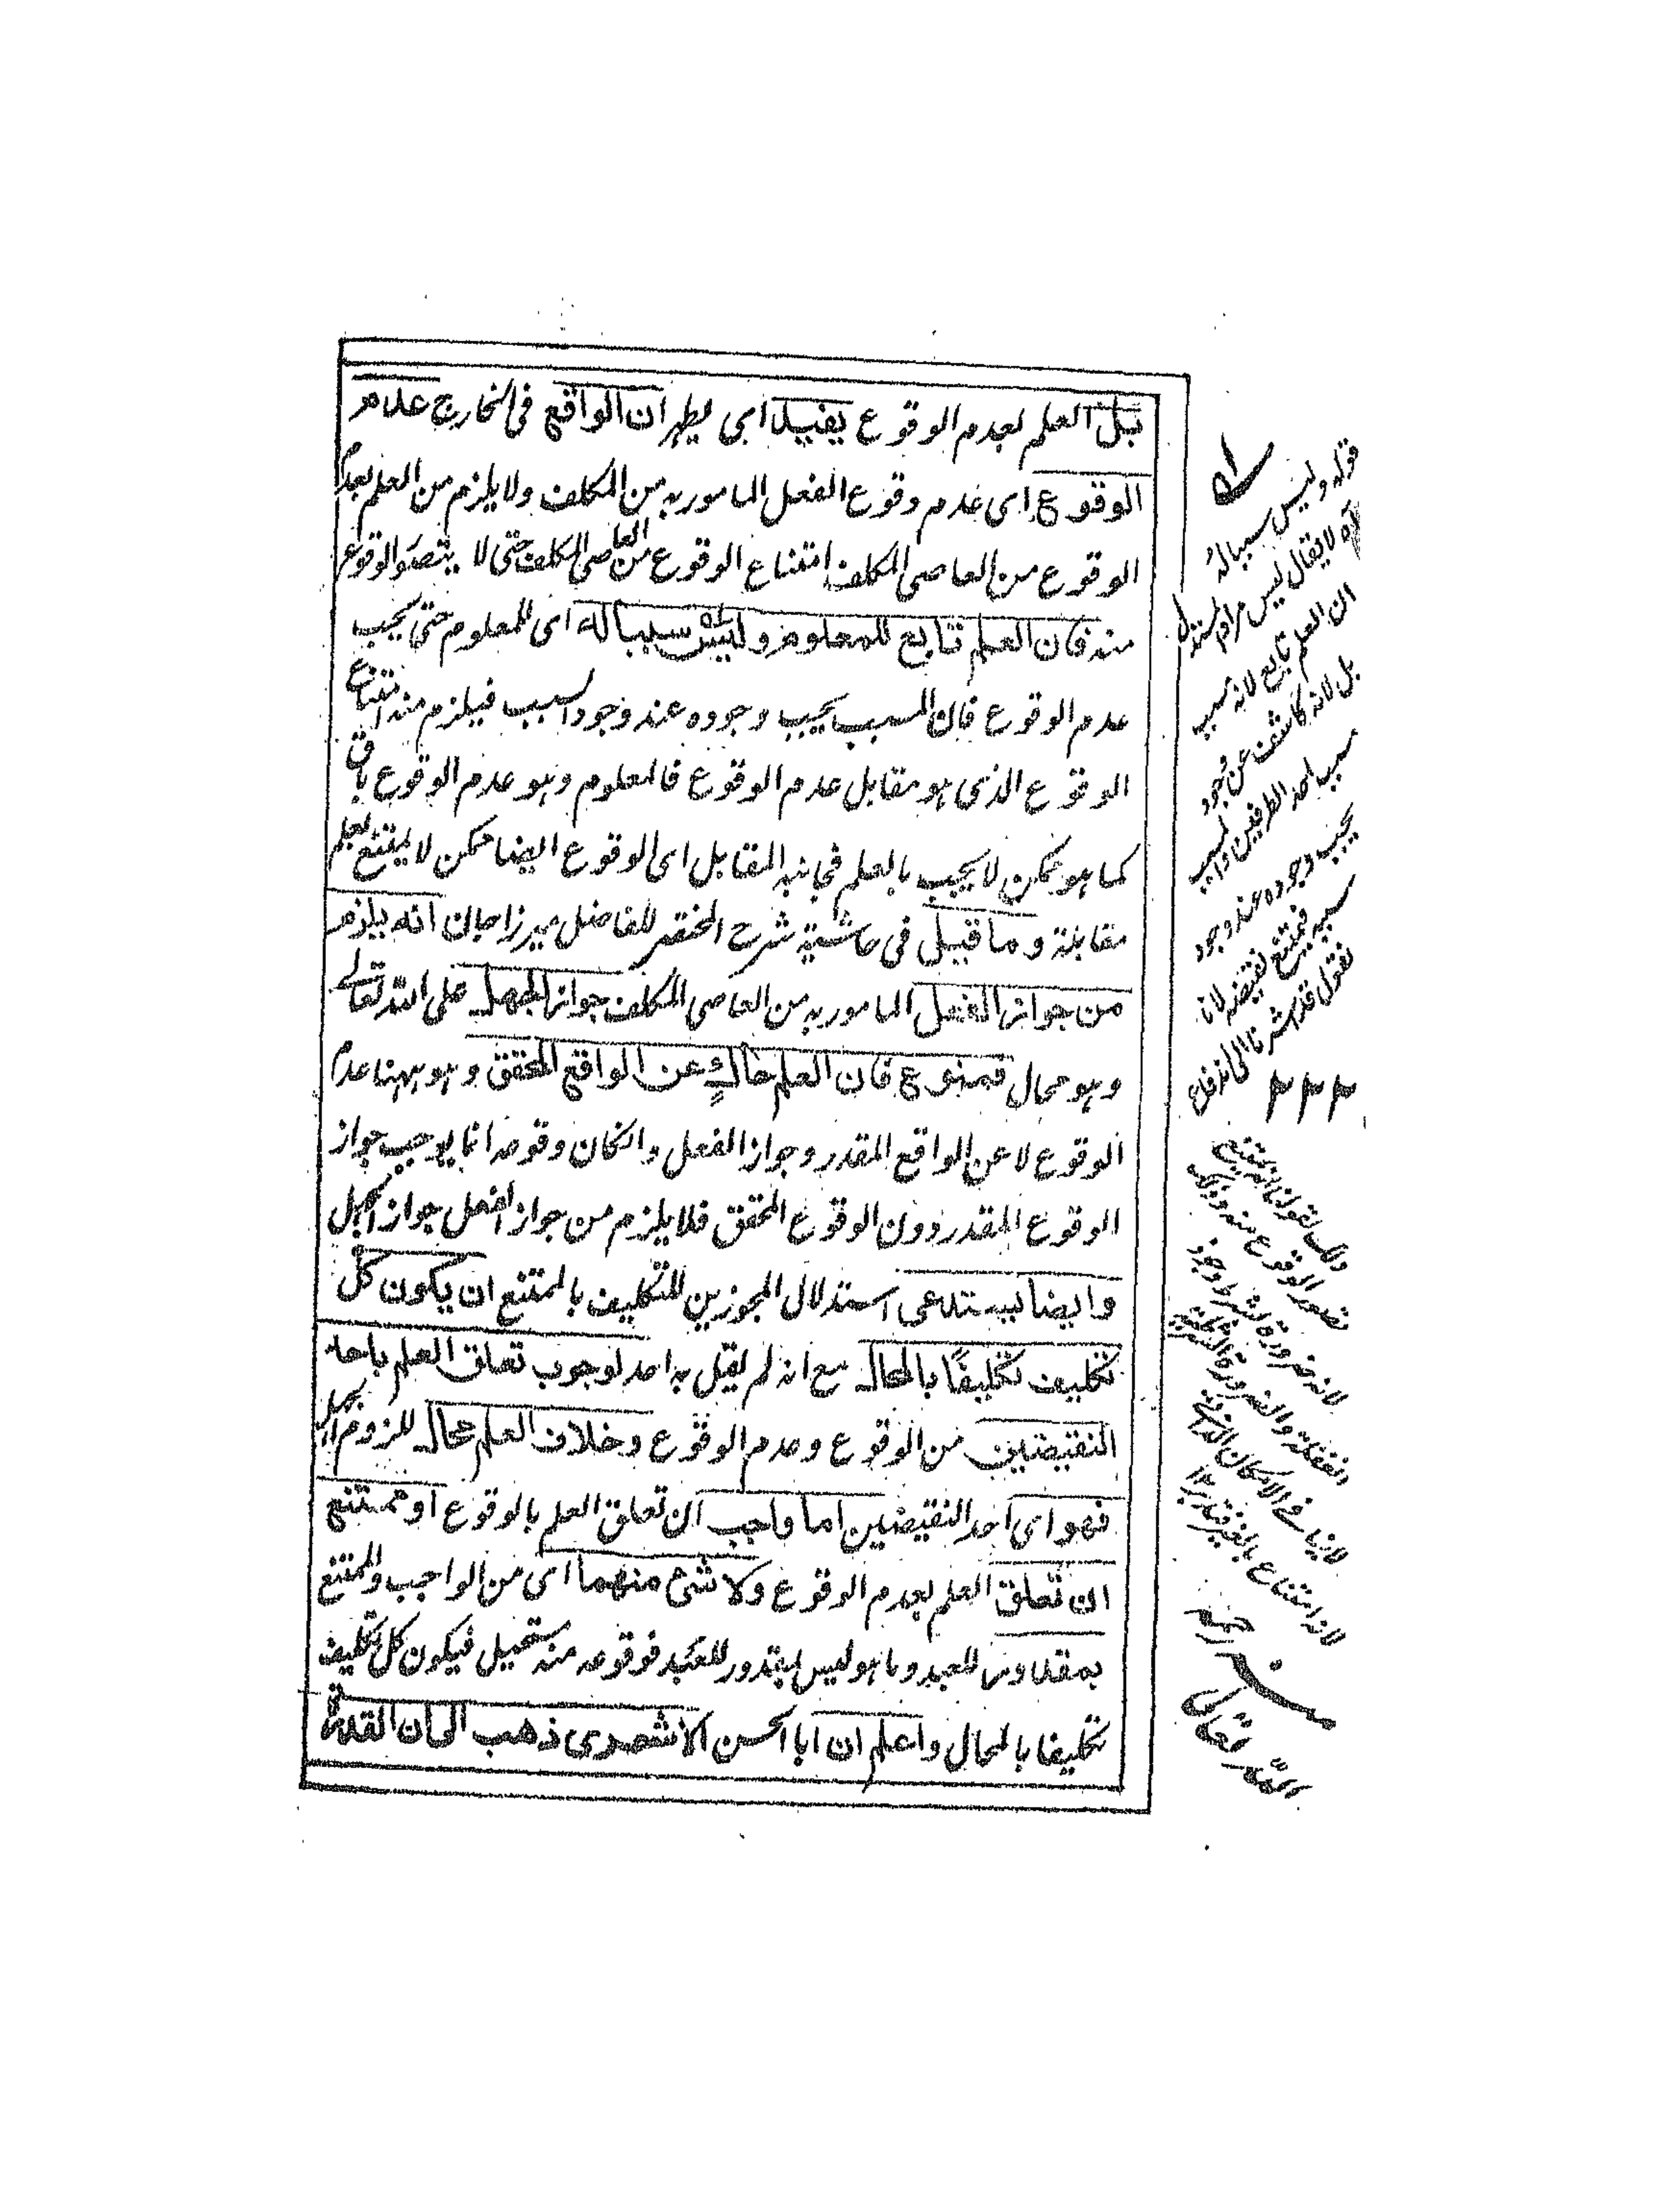 بل العلم بعدم الوقوع يفيد اى يظهر ان الواقع فى الخارج عدم
الوقوع اى عدم وقوع الفعل المامور به من المكلف ولا يلزم من العلم بعدم
الوقوع من العاصى المكلف امتناع الوقوع من العاصى المكلف حتى لا يتصور الوقوع
منه فان العلم تابع للمعلوم وليس سببا له اى للمعلوم حتى يجب
عدم الوقوع فان المسبب يجب وجوده عند وجود السبب فيلزم منه امتناع
الوقوع الذى هو مقابل عدم الوقوع فالمعلوم وهو عدم الوقوع باق
كما هو ممكن لا يجب بالعلم فجانبه المقابل اى الوقوع ايضا ممكن لا يمتنع بعلم
مقابله وما قيل فى حاشية شرح المختصر للفاضل ميرزاجان انه يلزم
من جواز الفعل المامور به من العاصى المكلف جواز الجهل على الله تعالى
وهو محال فممنوع فان العلم حاكٍ عن الواقع المحقق وهو ههنا عدم
الوقوع لا عن الواقع المقدر وجواز الفعل وامكان وقوعه انما يوجب جواز
الوقوع المقدر دون الوقوع المحقق فلا يلزم من جواز الفعل جواز الجهل
وايضا يستدعى استدلال المجوزين للتكليف بالممتنع ان يكون كل
تكليف تكليفًا بالمحال مع انه لم يقل به احد لوجوب تعلق العلم باحد
النقيضين من الوقوع وعدم الوقوع وخلاف العلم محال للزوم الجهل
فهو اى احد النقيضين اما واجب ان تعلق العلم بالوقوع او ممتنع
ان تعلق العلم بعدم الوقوع ولا شئ منهما اى من الواجب والممتنع
بمقدور للعبد وما هو ليس بمقدور للعبد فوقوعه منه مستحيل فيكون كل تكليف
تكليفا بالمحال واعلم ان ابا الحسن الاشعرى ذهب الى ان القدرة
قوله وليس سببا له
آه لا يقال ليس مرام المستدل
ان العلم تابع لانه سبب
بل لانه كاشف عن وجود
سبب احد الطرفين والمسبب
يجب وجوده عند وجود
سببه فيمتنع نقيضه لانا
نقول قد اشرنا الى اندفاع
ذلك بقولنا انه يمتنع
تصور الوقوع منه وذلك
لانه ضرورة بشرط وجود
لا ينافى الامكان الذاتى
لانه امتناع بالغير
رحمه
الله تعالى